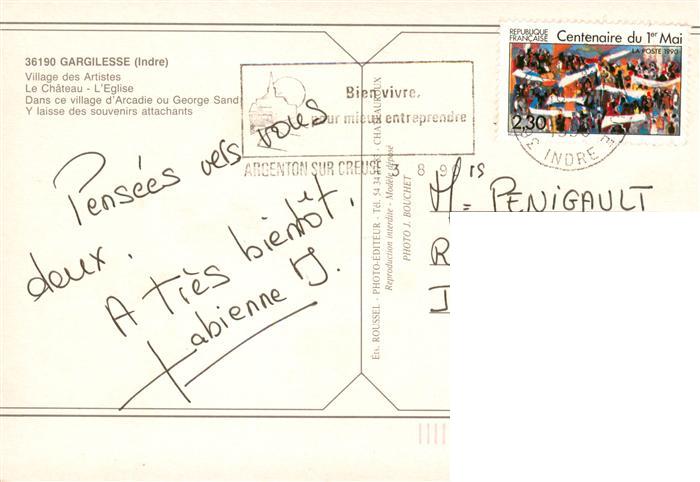 36190 GARGILESSE (Indre)
Village des Artistes
Le Château - L'Eglise
Dans ce village d'Arcadie ou George Sand
Y laisse des souvenirs attachants
Bien vivre,
pour mieux entreprendre
ARGENTON SUR CREUSE 3 8 9
REPUBLIQUE
FRANÇAISE
Centenaire du 1er Mai
LA POSTE 1990
2,30
INDRE
Pensées vers vous
deux.
A très bientôt.
Fabienne
Ets. ROUSSEL - PHOTO-EDITEUR - Tél. - CHATEAUROUX
Reproduction interdite - Modèle déposé
PHOTO J. BOUCHET
PENIGAULT
R